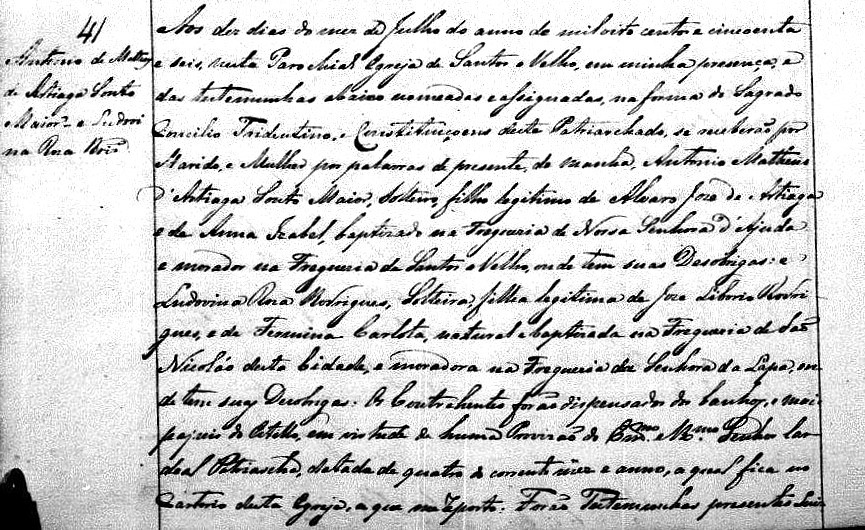 41
Antonio de Mathes
de Artiaga Souto
Maior e Ludovi
na Rosa Roiz
Aos dez dias do mez de Julho do anno de mil oito centos e cincoenta
e seis, nesta Parochial Egreja de Santos o Velho, em minha presença, e
das testemunhas abaixo nomeadas e assignadas, na forma do Sagrado
Concilio Tridentino, e Constituiçoens deste Patriarchado, se receberão por
Marido, e Mulher por palavras de presente, de manhã, Antonio Matheus
d'Artiaga Souto Maior, Solteiro, filho legitimo de Alvaro Joze de Artiaga
e de Anna Izabel, baptizado na Freguezia de Nossa Senhora d'Ajuda
e morador na Freguezia de Santos o Velho, onde tem suas Desobrigas: e
Ludovina Rosa Rodrigues, Solteira, filha legitima de Joze Liborio Rodri-
gues, e de Firmina Carlota, natural e baptizada na Freguezia de São
Nicoláo desta Cidade, e moradora na Freguezia da Senhora da Lapa, on
de tem suas Desobrigas: Os Contrahentes forão dispensados dos banhos, e mais
papeis do Estillo, em virtude de huma Provizão do Em.mo e R.mo Senhor Car
deal Patriarcha, datada de quatro do corrente mez e anno, a qual fica no
Cartorio desta Egreja, a que me reporto. Forão Testemunhas presentes Luiz